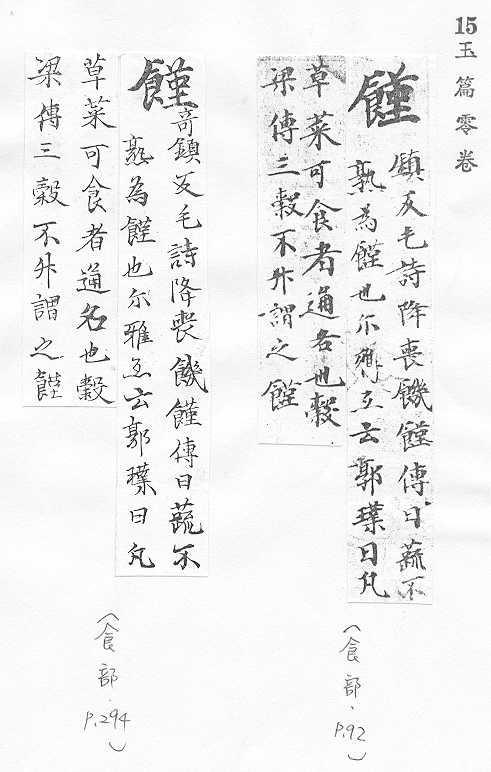 15玉篇零卷
饉
鎮反毛詩降喪饑饉傳曰蔬不
熟為饉也尒雅亦云郭璞曰凡
草菜可食者通名也穀
梁傳三穀不升謂之饉
(食部.P.92)
饉
奇鎮反毛詩降喪饑饉傳曰蔬不
熟為饉也尒雅亦云郭璞曰凡
草菜可食者通名也穀
梁傳三穀不升謂之饉
(食部.P.294)